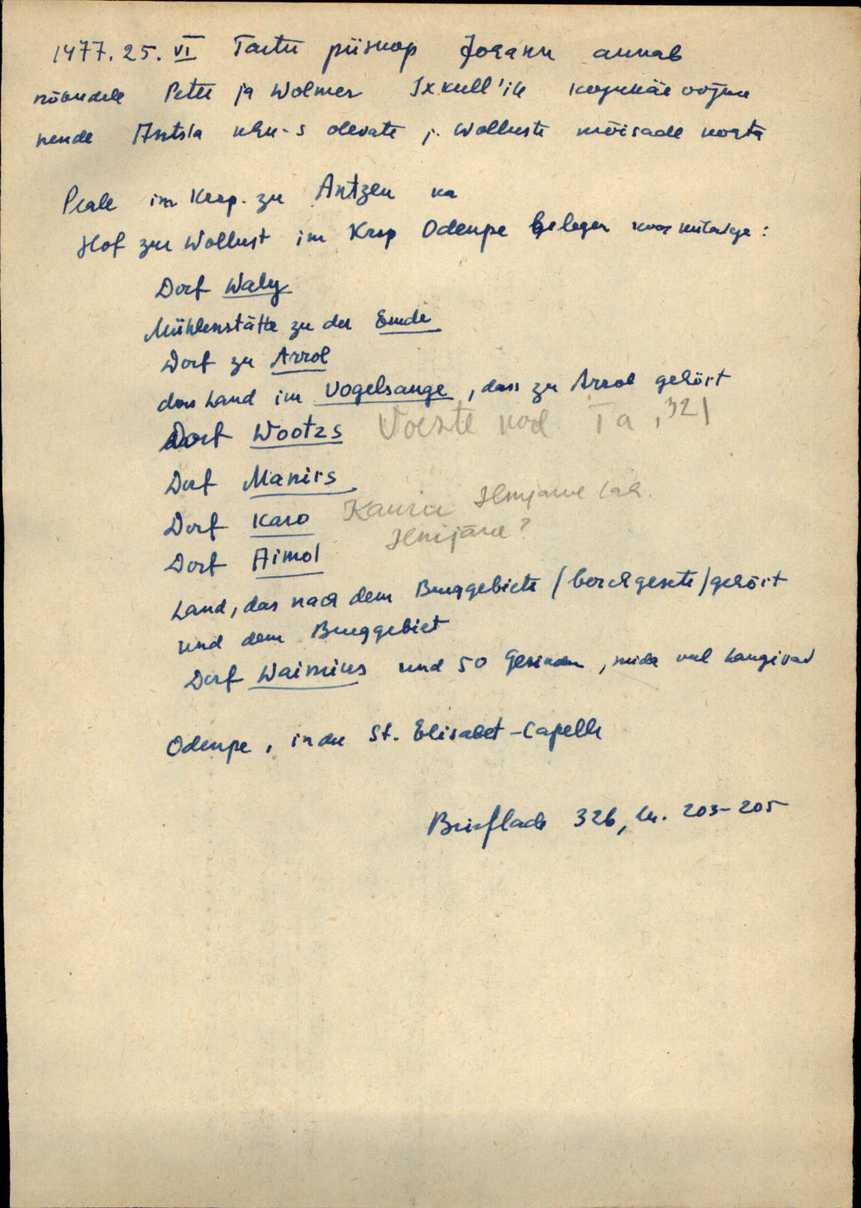 1477. 25. VI Tartu piiskop Johann annab
nõbudele Peter ja Wolmer Ixkull'ile
nende Antsla khk-s olevate j. Wollusti mõisade kohta
Peale im Kresp. zu Antzen ka
Hof zur Wollust im Kresp Odenpe belegen koos küladega:
Dorf Waly
Mühlenstätte zu der Emde
Dorf zu Arrol
das Land im Vogelsange, dass zu Arrol gehört
Dorf Wootzs Voeste kod Ta, 321
Dorf Manirs
Dorf Karo Kauru Ilmjärve lah.
Dorf Aimol Ilmjärve?
Land, das nach dem Burggebiete / borchgesete / gehört
und dem Burggebiet
Dorf Waimius und 50 Gesinden, mida veel
Odenpe, in der St. Elisabet-Capelle
Brieflade 326, lk. 203-205